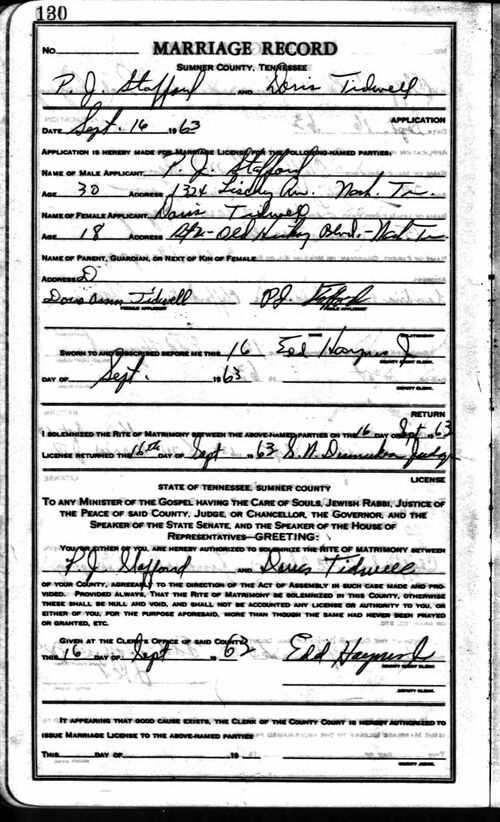 130
No. MARRIAGE RECORD
SUMNER COUNTY, TENNESSEE
P. J. Stafford AND Doris Tidwell
APPLICATION
DATE Sept. 16 1963
APPLICATION IS HEREBY MADE FOR MARRIAGE LICENSE FOR THE FOLLOWING-NAMED PARTIES:
NAME OF MALE APPLICANT P. J. Stafford
AGE 30 ADDRESS 1324 Av. Nash. Tn.
NAME OF FEMALE APPLICANT Doris Tidwell
AGE 18 ADDRESS Old Hickory Blvd.-Nash Tn
NAME OF PARENT, GUARDIAN, OR NEXT OF KIN OF FEMALE
ADDRESS D
Doris Ann Tidwell P.J. Stafford
FEMALE APPLICANT MALE APPLICANT
NAME RELATIONSHIP
SWORN TO AND SUBSCRIBED BEFORE ME THIS 16 Edd Haynes Jr
COUNTY COURT CLERK
DAY OF Sept. 1963
DEPUTY CLERK
RETURN
I SOLEMNIZED THE RITE OF MATRIMONY BETWEEN THE ABOVE-NAMED PARTIES ON THE 16 DAY OF Sept 1963
LICENSE RETURNED THE 16th DAY OF Sept 1963 Judge
LICENSE
STATE OF TENNESSEE, SUMNER COUNTY
TO ANY MINISTER OF THE GOSPEL HAVING THE CARE OF SOULS, JEWISH RABBI, JUSTICE OF
THE PEACE OF SAID COUNTY, JUDGE, OR CHANCELLOR, THE GOVERNOR, AND THE
SPEAKER OF THE STATE SENATE, AND THE SPEAKER OF THE HOUSE OF
REPRESENTATIVES—GREETING:
YOU, OR EITHER OF YOU, ARE HEREBY AUTHORIZED TO SOLEMNIZE THE RITE OF MATRIMONY BETWEEN
P. J. Stafford AND Doris Tidwell
OF YOUR COUNTY, AGREEABLY TO THE DIRECTION OF THE ACT OF ASSEMBLY IN SUCH CASE MADE AND PRO-
VIDED. PROVIDED ALWAYS, THAT THE RITE OF MATRIMONY BE SOLEMNIZED IN THIS COUNTY, OTHERWISE
THESE SHALL BE NULL AND VOID, AND SHALL NOT BE ACCOUNTED ANY LICENSE OR AUTHORITY TO YOU, OR
EITHER OF YOU, FOR THE PURPOSE AFORESAID, MORE THAN THOUGH THE SAME HAD NEVER BEEN PRAYED
OR GRANTED, ETC.
GIVEN AT THE CLERK'S OFFICE OF SAID COUNTY
THIS 16 DAY OF Sept 1963 Edd Haynes Jr
COUNTY COURT CLERK
DEPUTY CLERK
IT APPEARING THAT GOOD CAUSE EXISTS, THE CLERK OF THE COUNTY COURT IS HEREBY AUTHORIZED TO
ISSUE MARRIAGE LICENSE TO THE ABOVE-NAMED PARTIES
THIS DAY OF 19
COUNTY JUDGE